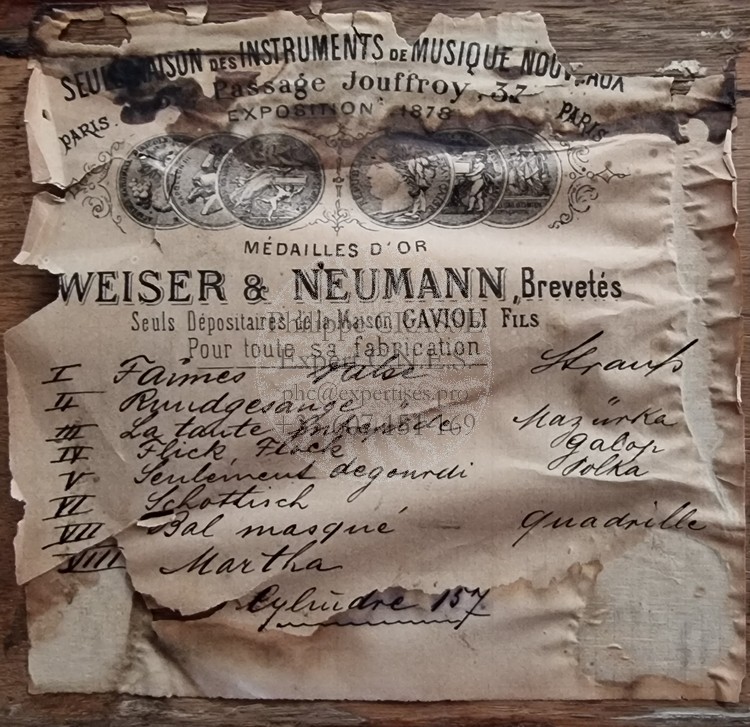 SEULE MAISON DES INSTRUMENTS DE MUSIQUE NOUVEAUX
Passage Jouffroy, 37
PARIS. EXPOSITION 1878 PARIS
MÉDAILLES D'OR
WEISER & NEUMANN, Brevetés
Seuls Dépositaires de la Maison GAVIOLI FILS
Pour toute sa fabrication
I Faimes Valse Strauß
II Rundgesange
III La tante Mazürka
IV Flick Flock Galop
V Seulement degourdi Polka
VI Schottisch
VII Bal masqué Quadrille
VIII Martha
Cylindre 157
phc@expertises.pro